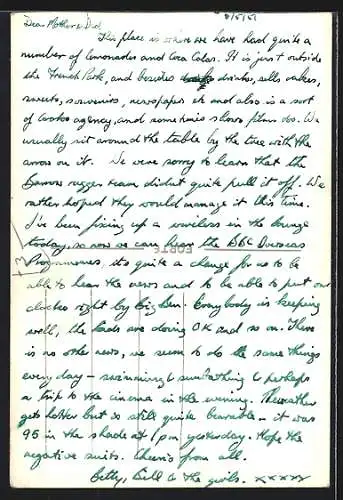 Dear Mother & Dad, 8/5/51
This place is where we have had quite a
number of lemonades and Coca Colas. It is just outside
the French Park, and besides drinks, sells cakes,
sweets, souvenirs, newspapers etc and also is a sort
of Cooks agency, and sometimes shows films too. We
usually sit around the table by the tree with the
arrow on it. We were sorry to learn that the
Barrow rugger team didnt quite pull it off. We
rather hoped they would manage it this time.
I've been fixing up a wireless in the lounge
today, so now we can hear the BBC Overseas
FORTE
Programmes, its quite a change for us to be
able to hear the news and to be able to put our
clocks right by Big Ben. Everybody is keeping
well, the kids are doing OK and so on. There
is no other news, we seem to do the same things
every day - swimming & sunbathing & perhaps
a trip to the cinema in the evening. The weather
gets hotter but is still quite bearable - it was
95 in the shade at 1 pm yesterday. Hope the
negative suits. Cheerio from all.
Betty, Bill & the girls. xxxxx